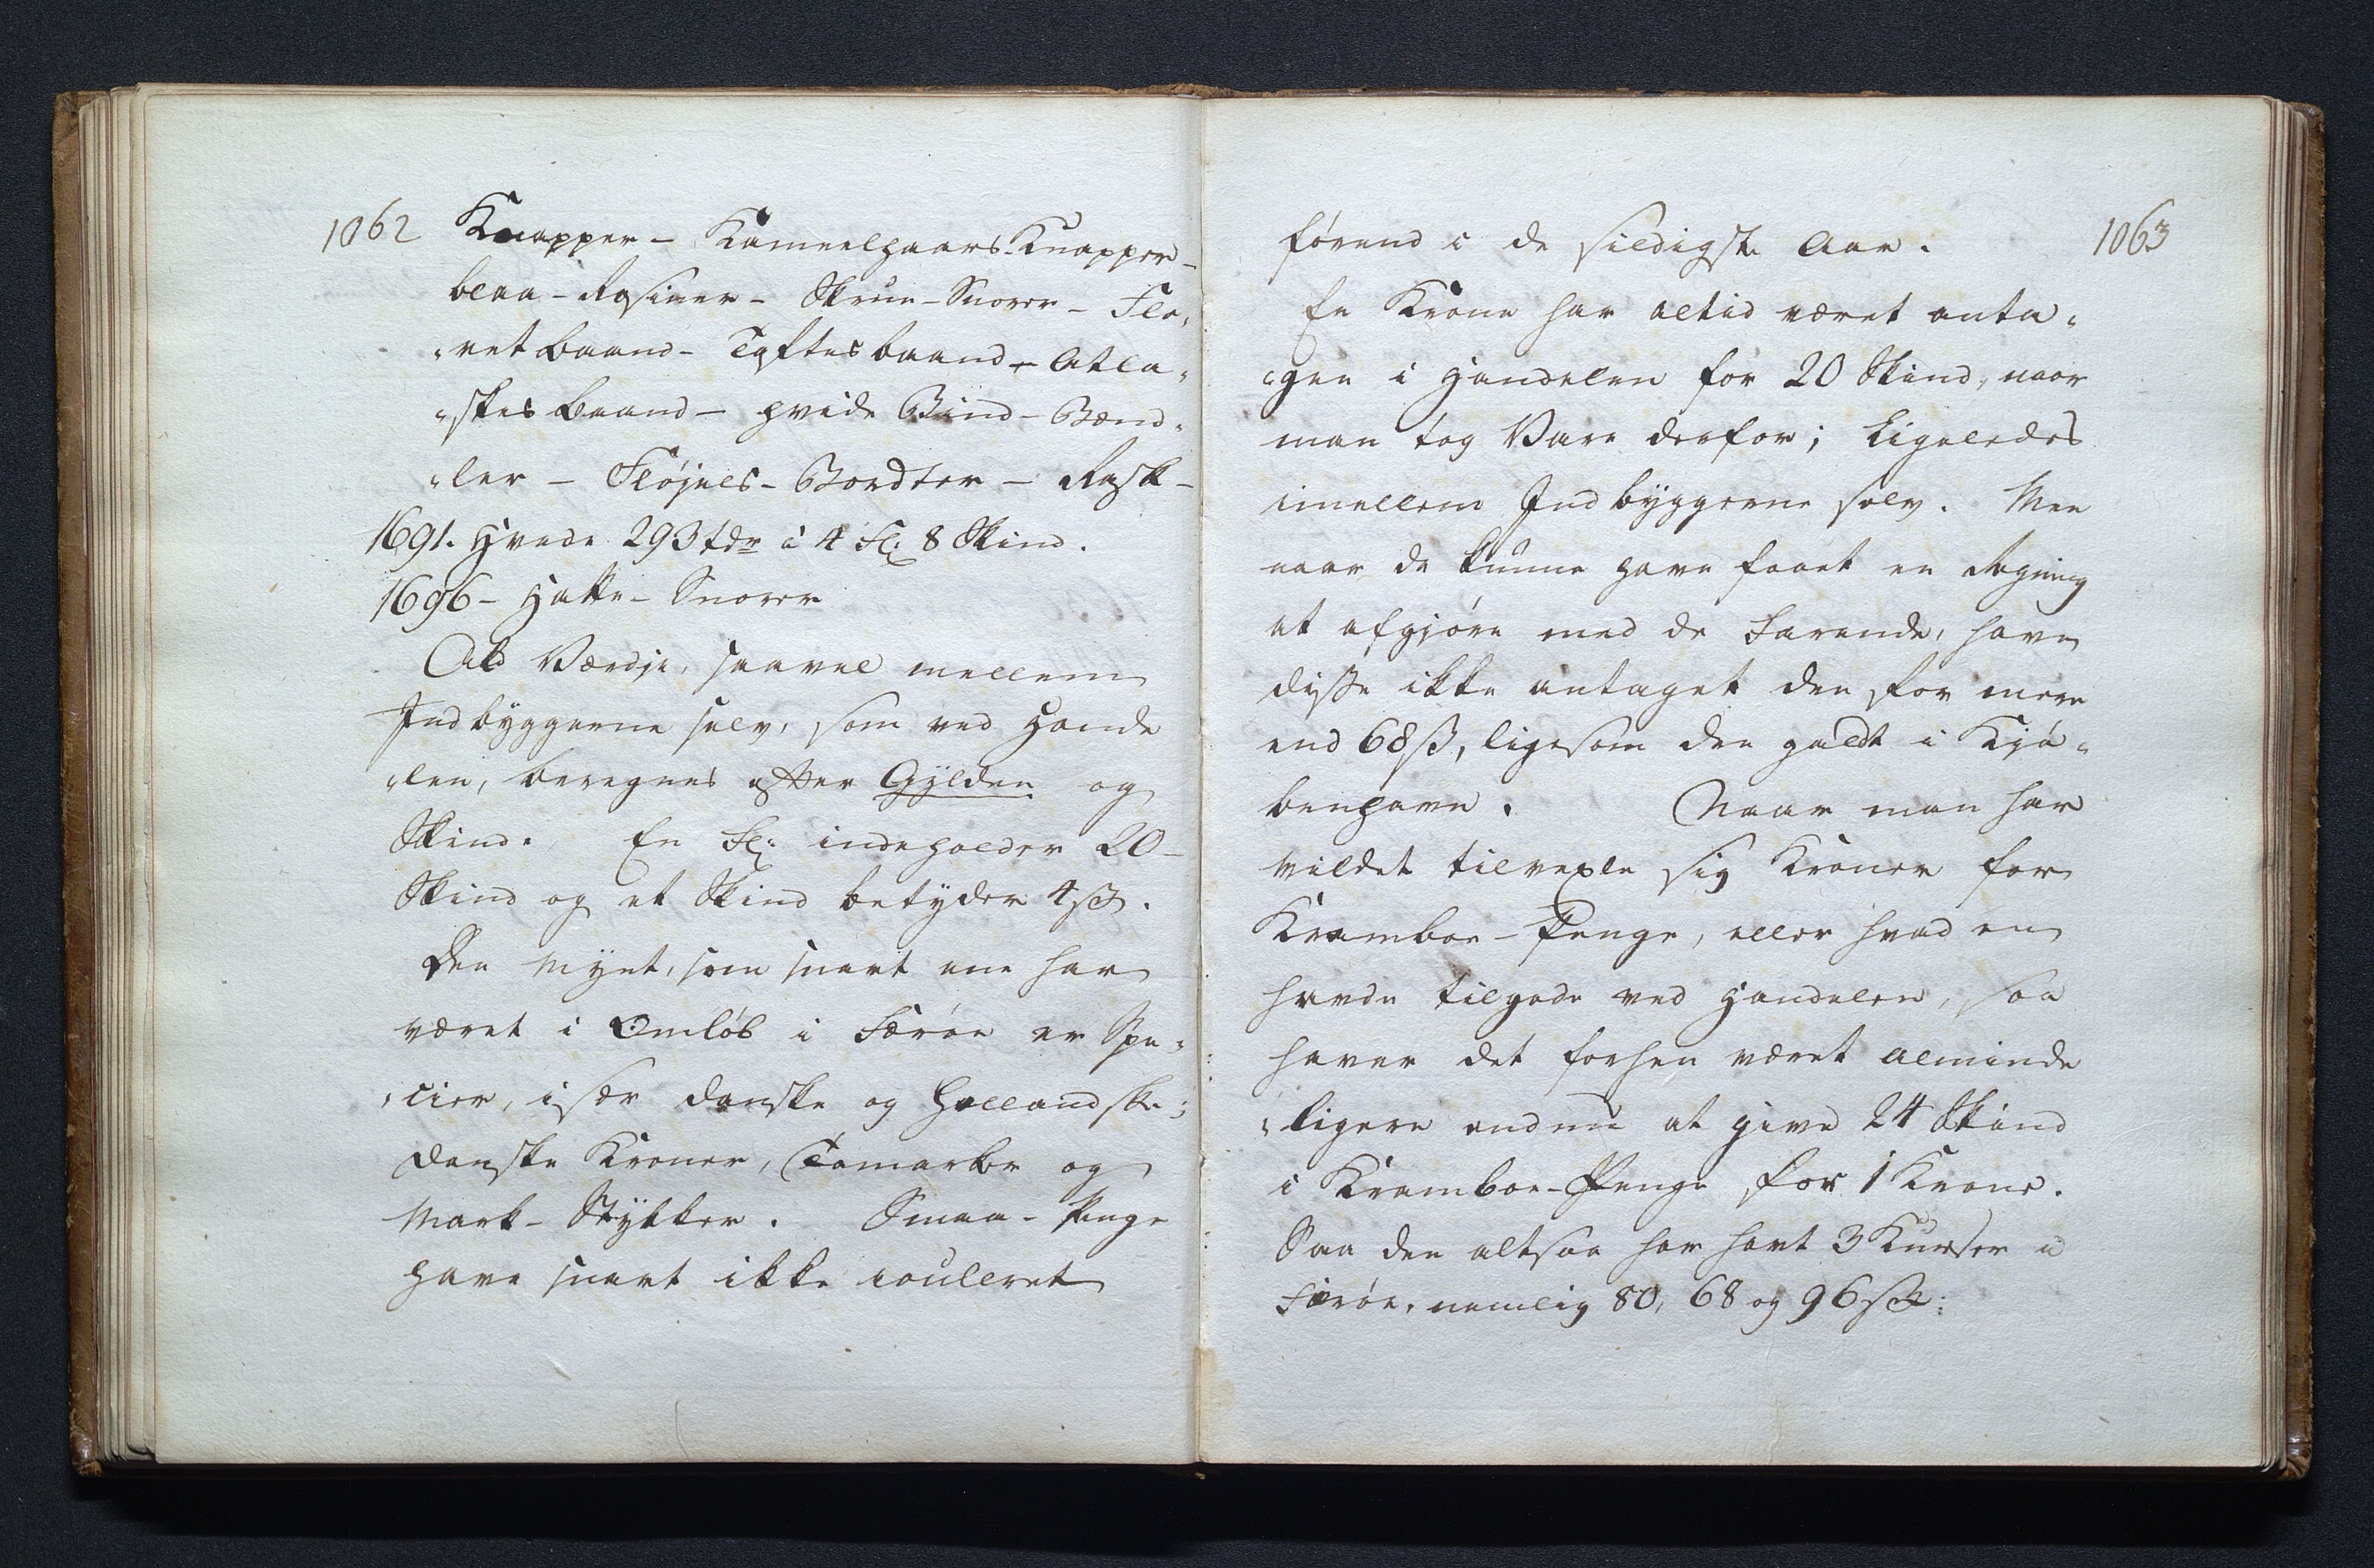 1062
Knapper - Kameelhaars-Knapper -
blaa - Rosiner - Skrue - Snorer - Flo„
„ret Baand - Taftes baand - Atla„
„skes Baand - hvide Bind - Bænd„
„ler - Fløjels - Bordter - Rask -
1691. Hvede 293 tdr à 4 Fl: 8 Skind.
1696 - Hatte - Snorer
Ald Værdje, saavel mellem
Indbyggerne selv, som ved Hande
„len, beregnes after Gylden og
Skind. En Fl: indeholder 20 -
Skind og et Skind betyder 4 ß.
Den Mynt, som snart ene har
været i Omløb i Færøe er Spe„
„cier, især danske og Hollandske;
danske Kroner, Tomarker og
Mark - Stykker. Smaa - Penge
have snart ikke rouleret
1063
førend i de sildigste Aar.
En Krone har altid været anta„
„gen i Handelen for 20 Skind, naar
man tog Vare derfor; Ligeledes
imellem Indbyggerne selv. Men
naar de kunne have faaet en Regning
at afgjøre med de Farende, have
disse ikke antaget den for mere
end 68 ß, ligesom den galdt i Kjø„
benhavn. Naar man har
vildet tilvexle sig Kroner for
Kramboe - Penge, eller hvad en
havde tilgode ved Handelen, saa
haver det forhen været alminde
„ligere end nu at give 24 Skind
i Kramboe - Penge for 1 Krone.
Saa den altsaa har havt 3 Kurser i
Færøe, nemlig 80, 68 og 96 sk: